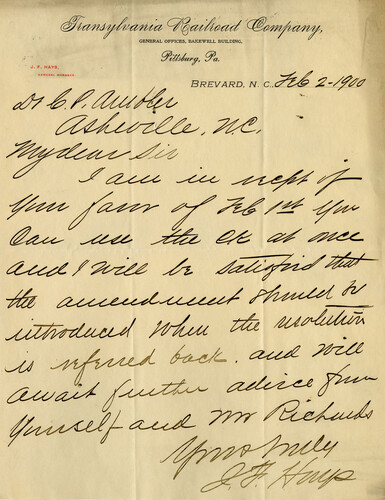 Transylvania Railroad Company,
GENERAL OFFICES, BAKEWELL BUILDING,
Pittsburg, Pa.
J. F. HAYS,
GENERAL MANAGER.
BREVARD, N. C. Feb 2-1900
Dr C. P. Ambler
Asheville, N.C.
My dear Sir
I am in recpt of
your favor of Feb 1st You
can use the ck at once
and I will be satisfied that
the amendment should be
introduced when the resolution
is referred back. and will
await further advice from
yourself and Mr Richards
Yours truly
J. F. Hays